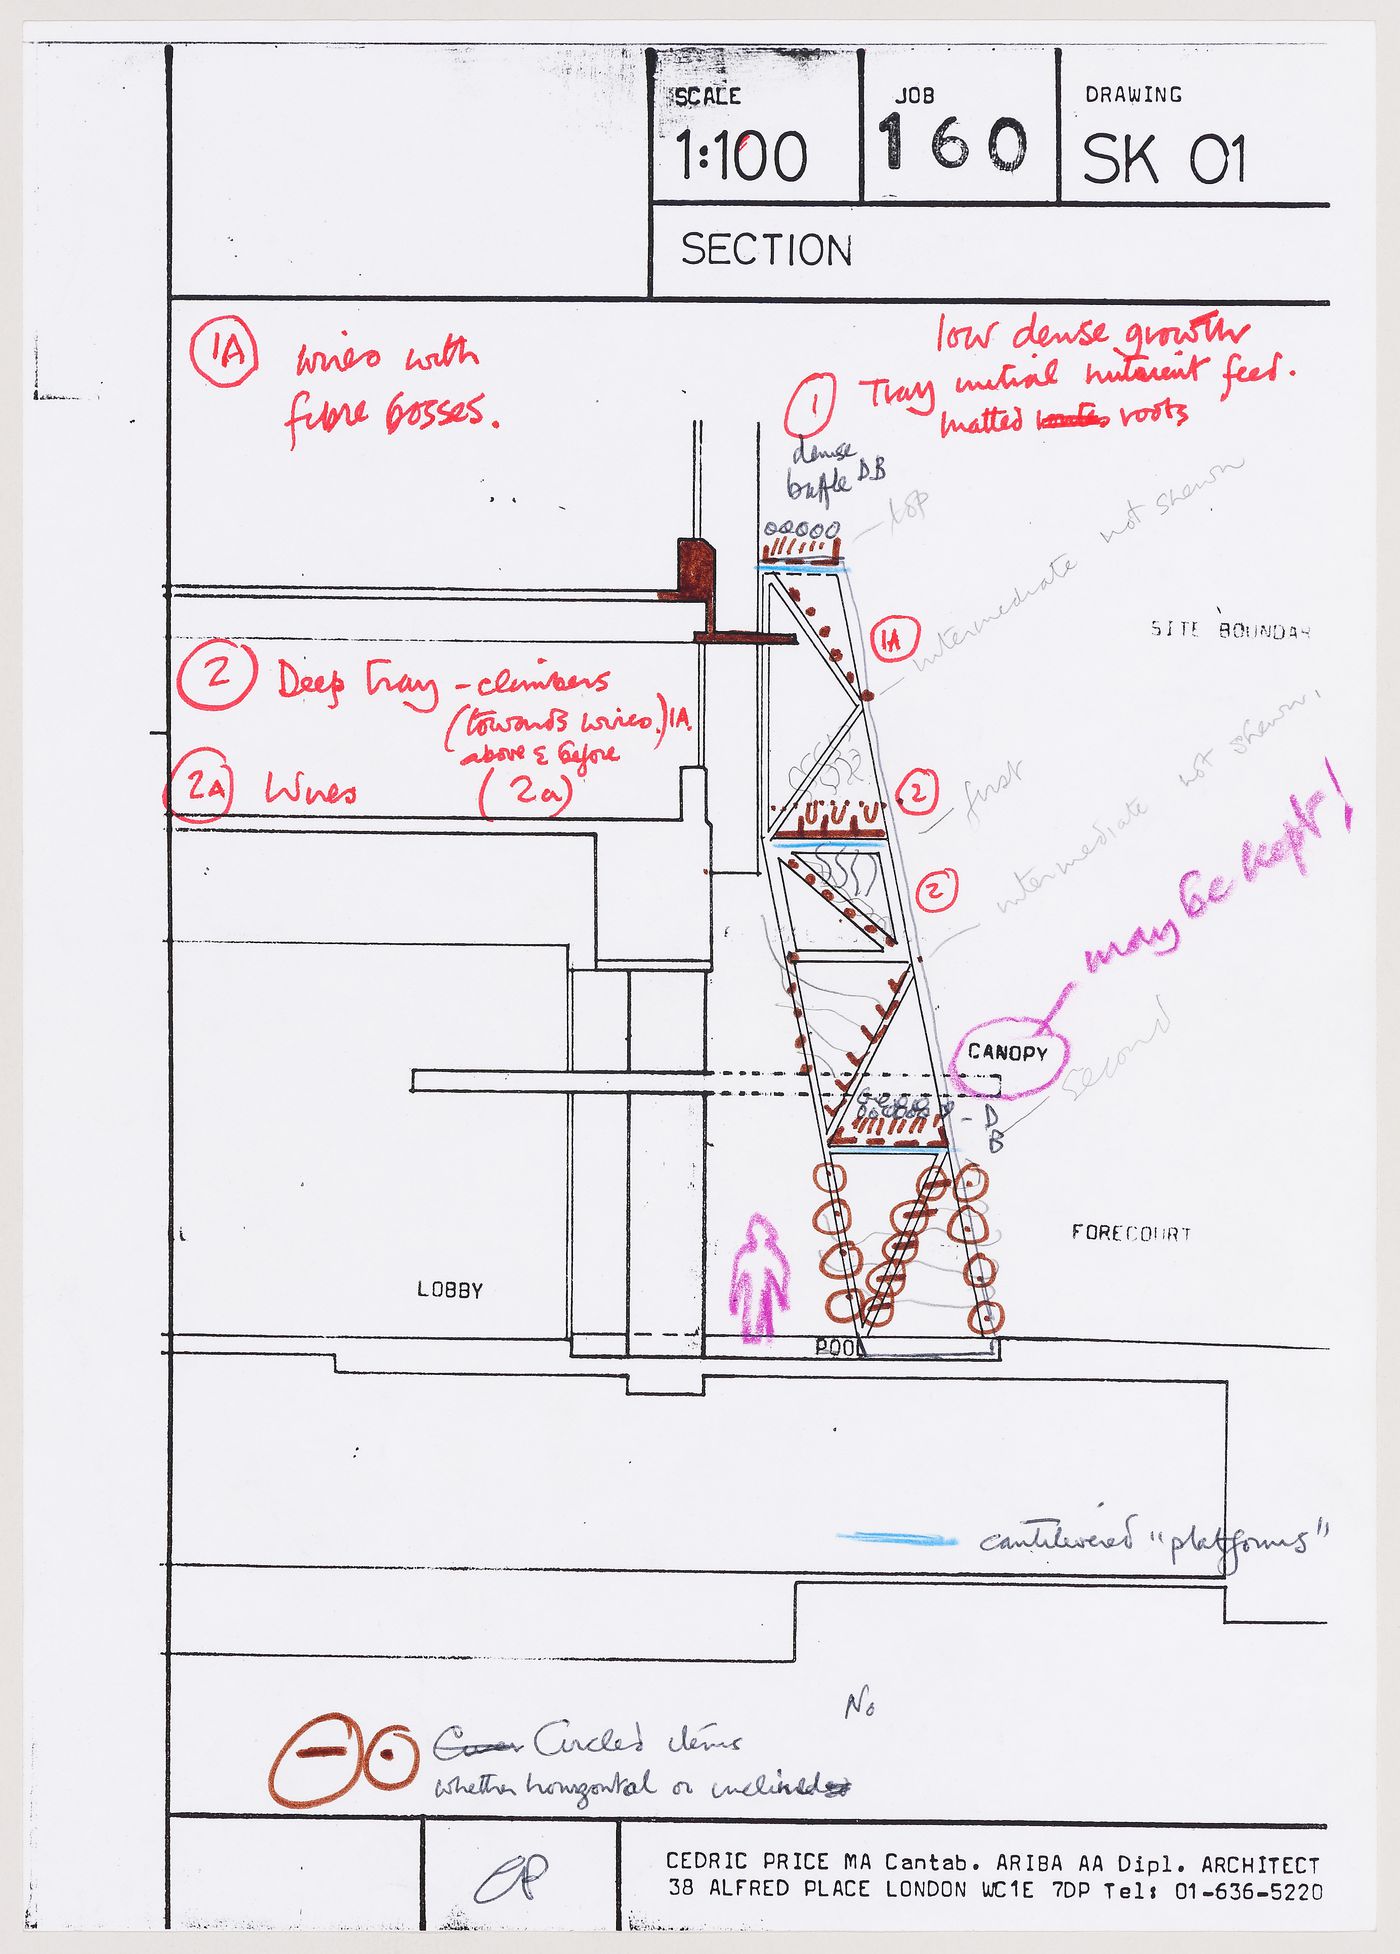 SCALE
1:100
JOB
160
DRAWING
SK 01
SECTION
1A wires with
fibre bosses.
low dense growth
1 Tray initial nutrient feed.
matted roots
dense
baffle DB
top
intermediate not shewn
1A
SITE BOUNDAR
2 Deep tray - climbers
(towards wires.) 1A.
above & before
2A Wires (2a)
2
first
intermediate not shewn.
2
may be kept!
CANOPY
second
D
B
FORECOURT
LOBBY
POOL
cantilevered "platforms"
No
Circled items
whether horizontal or inclined
CP
CEDRIC PRICE MA Cantab. ARIBA AA Dipl. ARCHITECT
38 ALFRED PLACE LONDON WC1E 7DP Tel: 01-636-5220